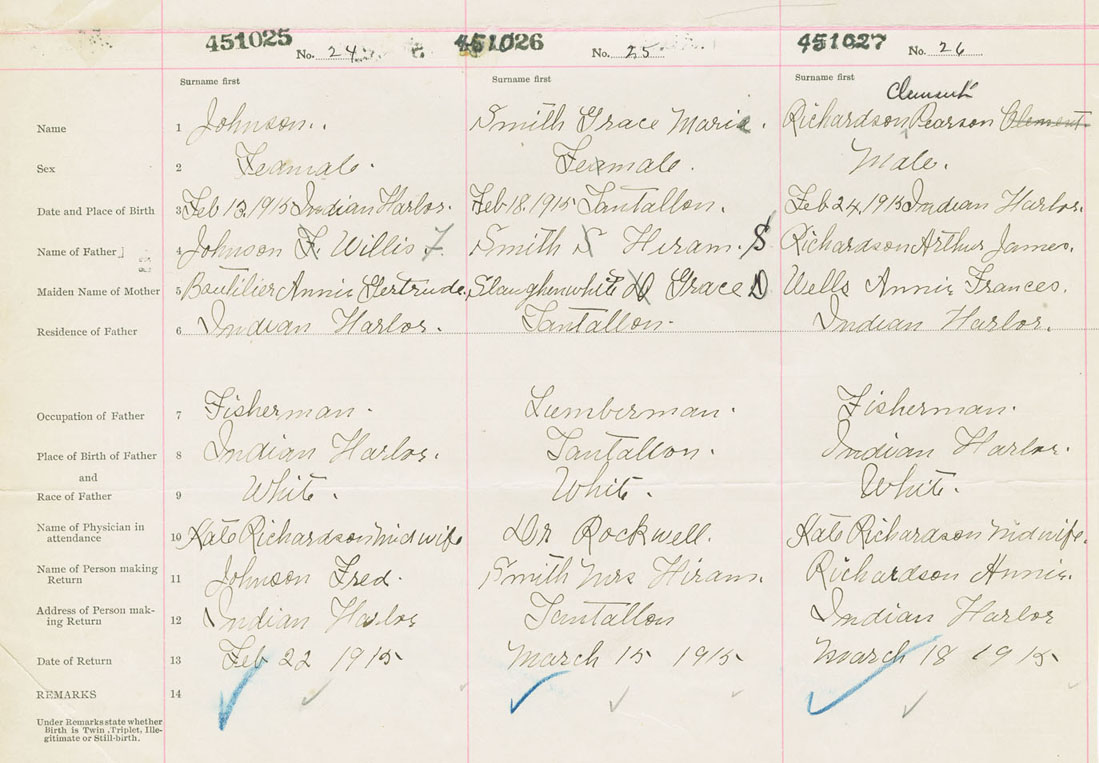 451025 No. 24 451026 No. 25 451027 No. 26
Surname first Surname first Surname first
Clement
Name 1 Johnson. Smith Grace Marie. Richardson Pearson Clement
Sex 2 Female. Female. Male.
Date and Place of Birth 3 Feb 13, 1915 Indian Harbor. Feb 18, 1915 Tantallon. Feb 24, 1915 Indian Harbor.
Name of Father 4 Johnson F. Willis F Smith S Hiram. S Richardson Arthur James.
Maiden Name of Mother 5 Boutilier Annie Gertrude. Slaughenwhite D Grace D Wells Annie Frances.
Residence of Father 6 Indian Harbor. Tantallon. Indian Harbor.
Occupation of Father 7 Fisherman. Lumberman. Fisherman.
Place of Birth of Father 8 Indian Harbor. Tantallon. Indian Harbor.
and
Race of Father 9 White. White. White.
Name of Physician in
attendance 10 Kate Richardson Midwife Dr Rockwell. Kate Richardson Midwife.
Name of Person making
Return 11 Johnson Fred. Smith Mrs Hiram. Richardson Annie.
Address of Person mak-
ing Return 12 Indian Harbor Tantallon Indian Harbor
Date of Return 13 Feb 22 1915 March 15 1915 March 18 1915
REMARKS 14
Under Remarks state whether
Birth is Twin, Triplet, Ille-
gitimate or Still-birth.